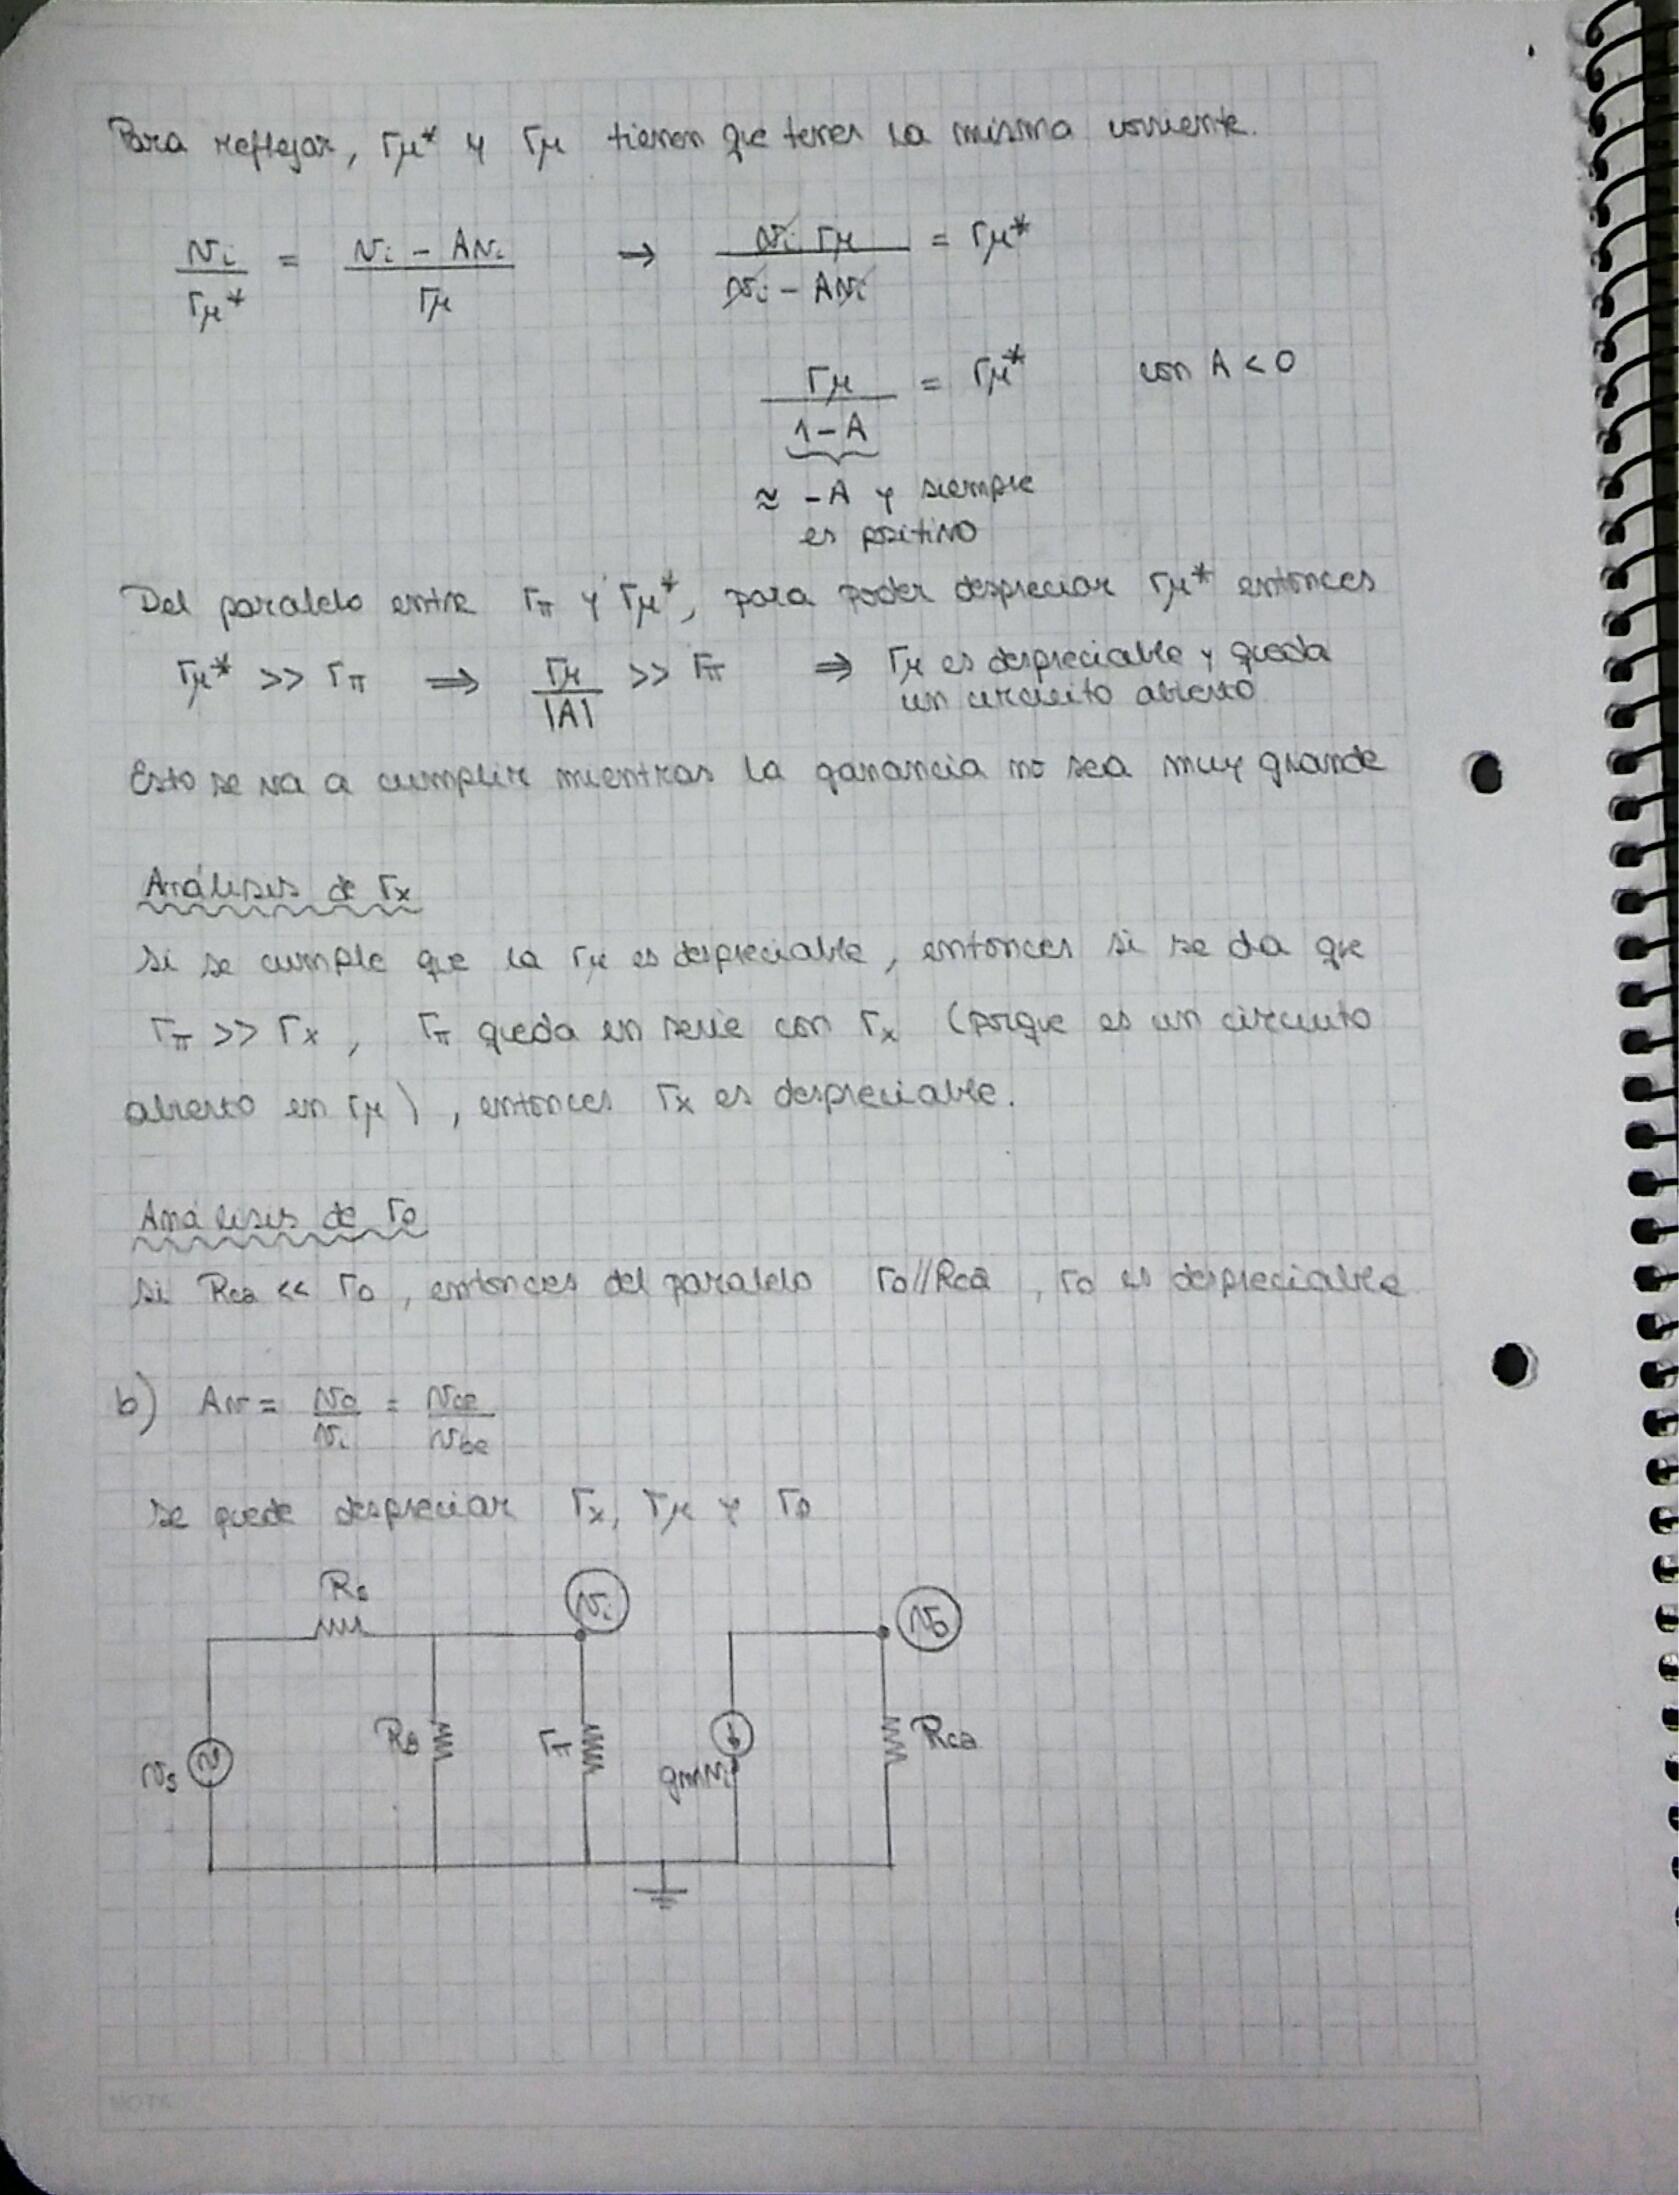 Para reflejar, rμ* y rμ tienen que tener la misma corriente.
vi / rμ* = (vi - Avi) / rμ → vi rμ / (vi - Avi) = rμ*
rμ / (1 - A) = rμ* con A < 0
≈ -A y siempre
es positivo
Del paralelo entre rπ y rμ*, para poder despreciar rμ* entonces
rμ* >> rπ ⇒ rμ / |A| >> rπ ⇒ rμ es despreciable y queda
un circuito abierto
Esto se va a cumplir mientras la ganancia no sea muy grande
Análisis de rx
Si se cumple que la rμ es despreciable, entonces si se da que
rπ >> rx, rπ queda en serie con rx (porque es un circuito
abierto en rμ), entonces rx es despreciable.
Análisis de ro
Si Rca << ro, entonces del paralelo ro//Rca, ro es despreciable
b) Av = vo / vi = vce / vbe
Se puede despreciar rx, rμ y ro
Rs vi vo
vs RB rπ gmvi Rca
NOTE